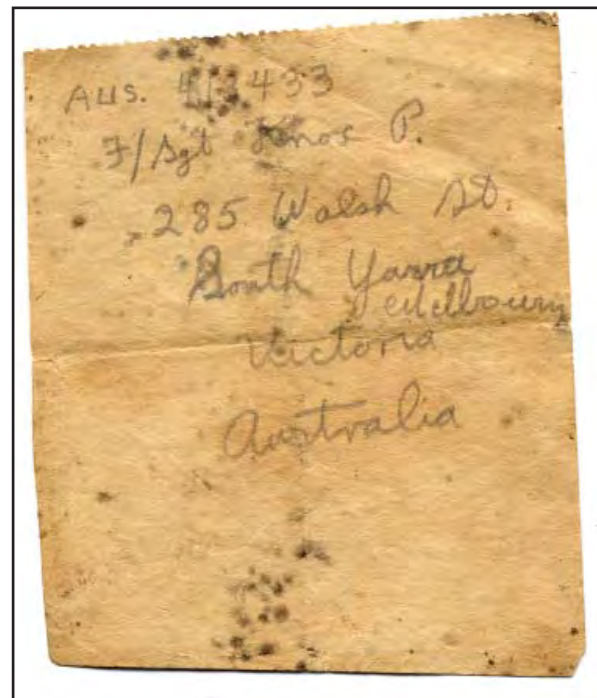 Aus. 413433
F/Sgt Knox P.
285 Walsh St.
South Yarra
Melbourne
Victoria
Australia